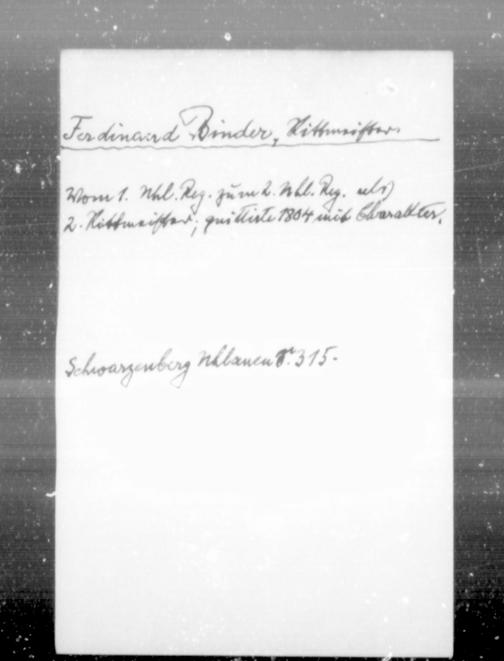 Ferdinand Binder, Rittmeister.
Vom 1. Uhl. Reg. zum 2. Uhl. Reg. als
2. Rittmeister, quittirte 1804 mit Charakter.
Schwarzenberg Uhlanen S. 315.